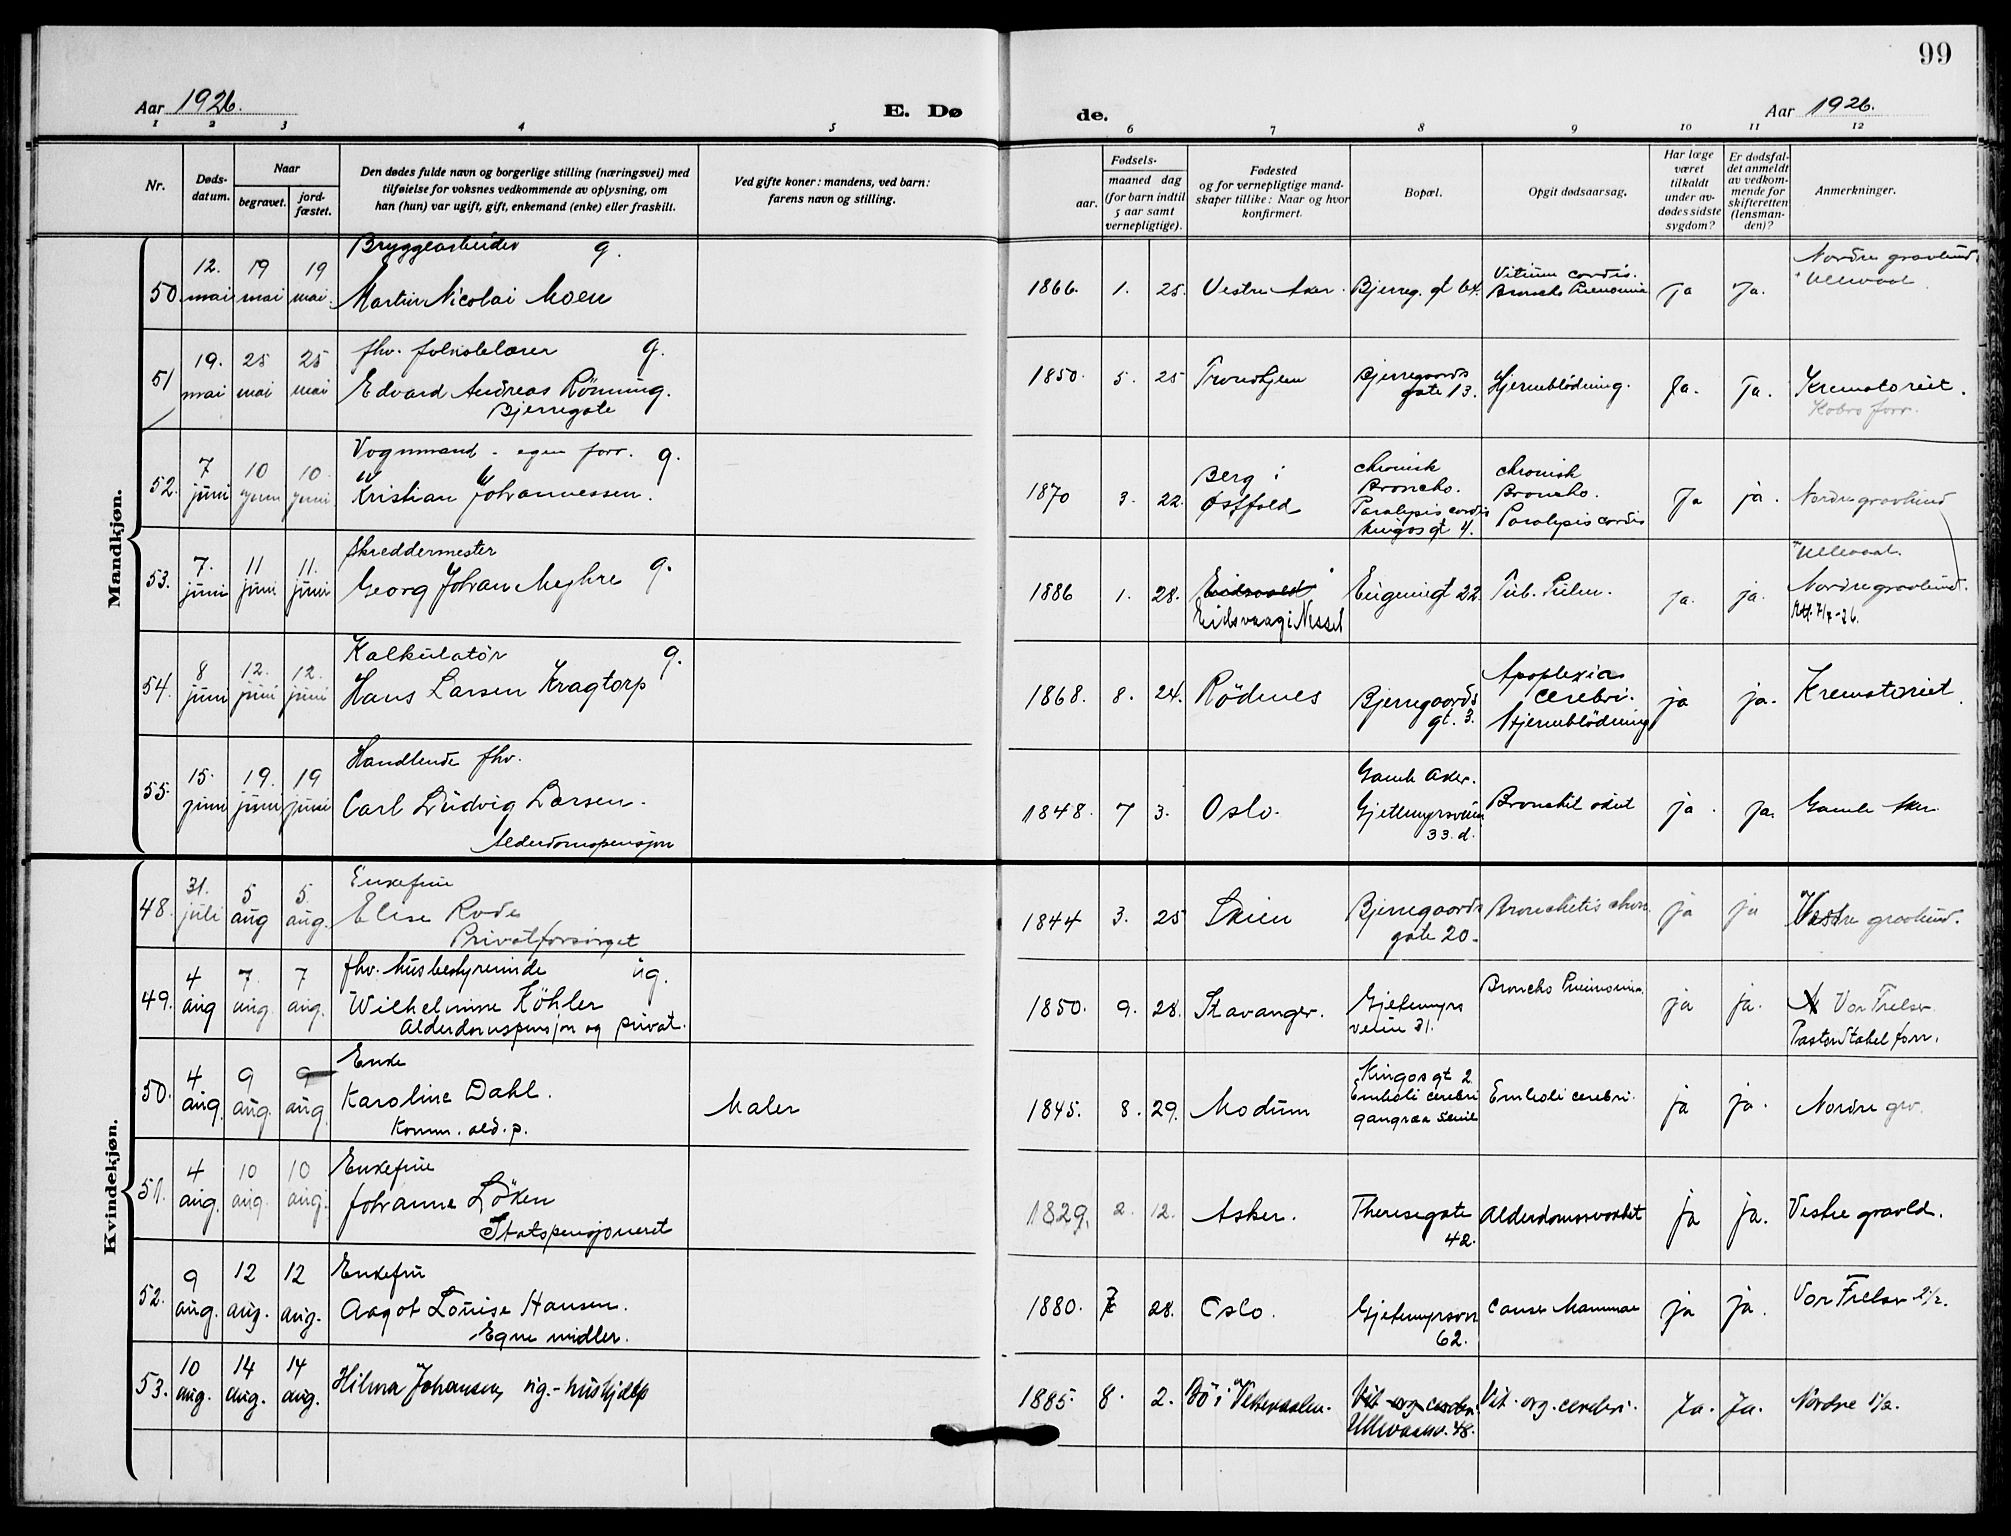 99
Aar 1926. E. Dø de. Aar 1926.
1 2 3 4 5 6 7 8 9 10 11 12
Nr.
Døds-
datum.
Naar
begravet.
jord-
fæstet.
Den dødes fulde navn og borgerlige stilling (næringsvei) med
tilføielse for voksnes vedkommende av oplysning, om
han (hun) var ugift, gift, enkemand (enke) eller fraskilt.
Ved gifte koner: mandens, ved barn:
farens navn og stilling.
Fødsels-
aar.
maaned dag
(for barn indtil
5 aar samt
vernepligtige).
Fødested
og for vernepligtige mand-
skaper tillike: Naar og hvor
konfirmert.
Bopæl.
Opgit dødsaarsag.
Har læge
været
tilkaldt
under av-
dødes sidste
sygdom?
Er dødsfal-
det anmeldt
av vedkom-
mende for
skifteretten
(lensman-
den)?
Anmerkninger.
Mandkjøn.
50. 12. mai 19 mai 19 mai.
Bryggearbeider g.
Martin Nicolai Moen
1866. 1. 25. Vestre Aker. Bjerreg. gt 64.
Vitium cordis.
Broncho Pneumonia
Ja Ja.
Nordre gravlund
Ullevaal
51 19. mai 25 mai 25 mai
fhv. folkelærer g.
Edvard Andreas Rönning.
Bjerregate
1850. 5. 25 Trondhjem
Bjerregaards
gate 13.
Hjerneblödning. Ja. Ja.
Krematoriet.
52. 7 juni 10 juni 10. juni
Vognmand - egen forr. g.
Kristian Johannessen.
1870 3. 22.
Berg i
Østfold
chronisk
Broncho.
Paralysis cordis
Kingos gt 4.
chronisk
Broncho.
Paralysis cordis
Ja ja.
Nordre gravlund
53. 7. juni 11 juni 11. juni
Skreddermester
Georg Johan Myhre g.
1886 1. 28.
Eidsvold
Eidsvaag i Nesset
Eugenigt 22. Tub. Pulm. Ja. ja.
Ullevaal.
Nordre gravlund.
7/7-26.
54. 8 juni 12. juni 12. juni
Kalkulatör g.
Hans Larsen Kragtorp
1868. 8. 24. Rödenes
Bjerregaards
gt. 3.
Apoplexia
cerebri.
Hjerneblödning
ja ja.
Krematoriet.
55. 15. juni 19. juni 19 juni
Handlende fhv.
Carl Ludvig Larsen.
Alderdomspensjon
1848. 7 3. Oslo.
Gamle Aker.
Gjetemyrsveien
33. d.
Bronchit akut ja. ja. Gamle Aker.
Kvindekjøn.
48. 31. juli 5 aug 5. aug.
Enkefrue
Elise Rode
Privatforsörget
1844 3. 25 Skien
Bjerregaards
gate 20.
Bronchitis chron. ja ja
Vestre gravlund.
49. 4 aug 7. aug. 7 aug.
fhv. husbestyrerinde ug.
Wilhelmine Köhler
Alderdomspensjon og privat.
1850. 9. 28. Stavanger.
Gjetemyrs
veien 31.
Broncho Pneumonia. ja ja.
Vor Frelser.
Pastor Stabel forr.
50. 4 aug. 9 aug. 9 aug.
Enke
Karoline Dahl.
Komm. ald. p.
Maler
1845. 8. 29. Modum
Kingos gt 2
Emboli cerebri
gangræn senil
Emboli cerebri. ja ja. Nordre grv.
51. 4 aug. 10 aug. 10 aug.
Enkefrue
Johanne Löken
Statspensjoneret
1829. 2. 12. Asker.
Theresegate
42.
Alderdomssvakhet ja ja. Vestre gravld.
52. 9 aug. 12 aug. 12 aug.
Enkefru
Aagot Louise Hansen.
Egne midler.
1880. 7 28. Oslo.
Gjetemyrsvn
62.
Cancer Mammae ja ja. Vor Frelser 2 1/2.
53. 10 aug. 14 aug. 14 aug.
Hilma Johansen, ug. - hushjelp
1885. 8. 2. Bö i Vesteraalen.
Vit. org. cerebri.
Ullevaalsv. 48.
Vit. org. cerebri. Ja. Ja. Nordre 1 1/2.